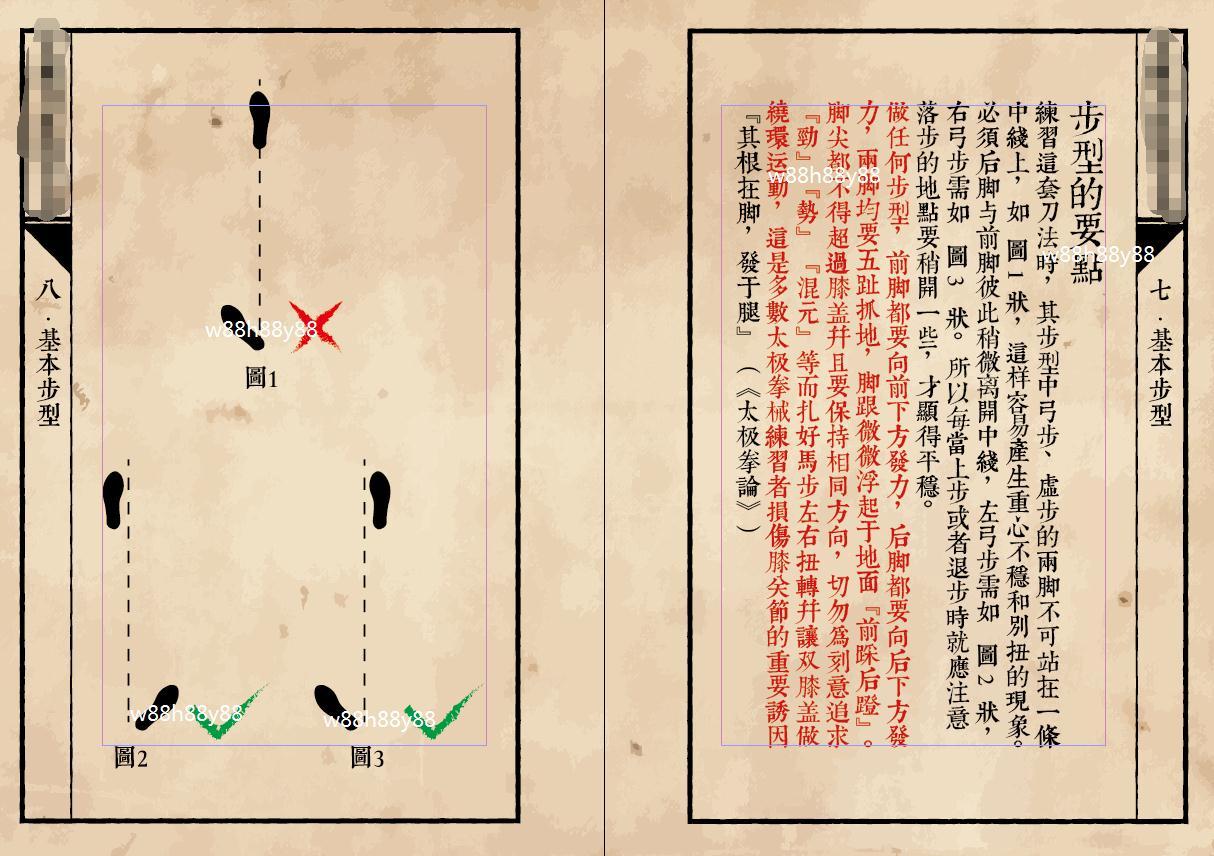 七·基本步型
步型的要點
練習這套刀法時，其步型中弓步、虛步的兩脚不可站在一條
中綫上，如 圖1狀，這样容易產生重心不穩和別扭的現象。
必須后脚与前脚彼此稍微离開中綫，左弓步需如 圖2狀，
右弓步需如 圖3 狀。所以每當上步或者退步時就應注意
落步的地點要稍開一些，才顯得平穩。
做任何步型，前脚都要向前下方發力，后脚都要向后下方發
力，兩脚均要五趾抓地，脚跟微微浮起于地面『前踩后蹬』。
脚尖都不得超過膝盖幷且要保持相同方向，切勿爲刻意追求
『勁』『勢』『混元』等而扎好馬步左右扭轉幷讓双膝盖做
繞環运動，這是多數太极拳械練習者損傷膝关節的重要誘因
『其根在脚，發于腿』（《太极拳論》）
w88h88y88
w88h88y88
八·基本步型
w88h88y88
圖1
w88h88y88
w88h88y88
圖2
圖3